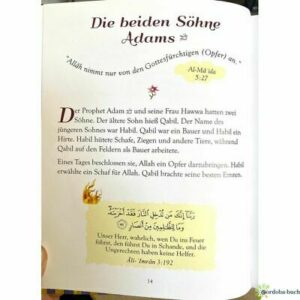 Die beiden Söhne
Adams
"Allâh nimmt nur von den Gottesfürchtigen (Opfer) an."
Al-Mâ'ida
5:27
Der Prophet Adam und seine Frau Hawwa hatten zwei
Söhne. Der ältere Sohn hieß Qabil. Der Name des
jüngeren Sohnes war Habil. Qabil war ein Bauer und Habil ein
Hirte. Habil hütete Schafe, Ziegen und andere Tiere, während
Qabil auf den Feldern als Bauer arbeitete.
Eines Tages beschlossen sie, Allah ein Opfer darzubringen. Habil
erwählte ein Schaf für Allah. Qabil brachte seine besten Ernten.
رَبَّنَا إِنَّكَ مَن تُدْخِلِ النَّارَ فَقَدْ أَخْزَيْتَهُ
وَمَا لِلظَّالِمِينَ مِنْ أَنصَارٍ
Unser Herr, wahrlich, wen Du ins Feuer
führst, den führst Du in Schande, und die
Ungerechten haben keine Helfer.
Âli- Imrân 3:192
14